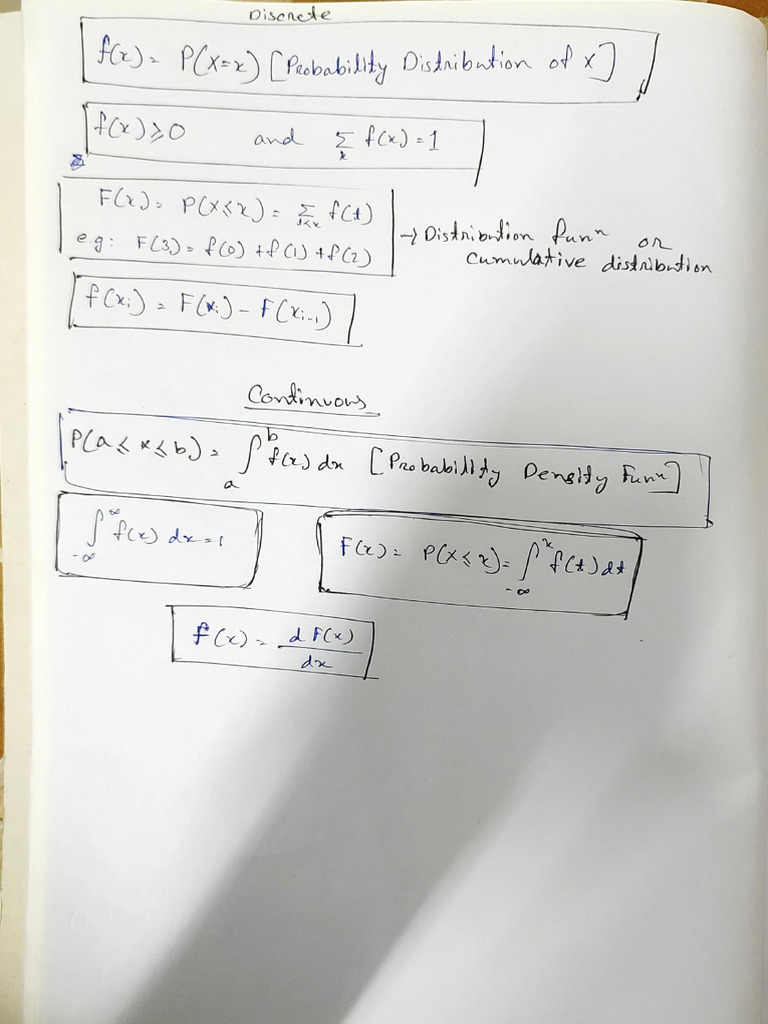 Discrete
f(x) = P(X=x) [Probability Distribution of X]
f(x) ⩾ 0 and ∑ₓ f(x) = 1
F(x) = P(X⩽x) = ∑ f(t)
e.g: F(3) = f(0) + f(1) + f(2)
→ Distribution funⁿ or
cumulative distribution
f(xᵢ) = F(xᵢ) - F(xᵢ₋₁)
Continuous
P(a ⩽ x ⩽ b) = ∫ₐᵇ f(x) dx [Probability Density Funⁿ]
∫_{-∞}^{∞} f(x) dx = 1
F(x) = P(X⩽x) = ∫_{-∞}^{x} f(t) dt
f(x) = dF(x)/dx